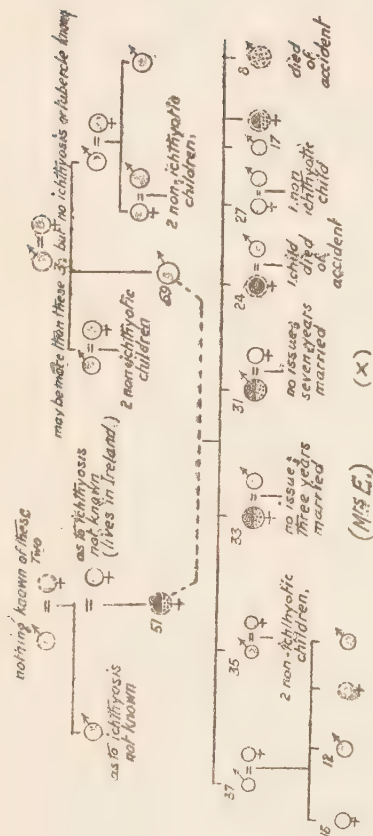 nothing known of these
Two
as to ichthyosis
not known
as to ichthyosis
not known
(lives in Ireland.)
51
may be more than these 3, but no ichthyosis or tubercle known
2 non-ichthyotic
children
69
2 non-ichthyotic
children,
37
16
12
35
2 non-ichthyotic
children,
33
no issue
three years
married
(Mrs E.)
31
no issue
seven years
married
(X)
24
1.child
died
of
accident
27
1.non
ichthyotic
child
17
8
died
of
accident